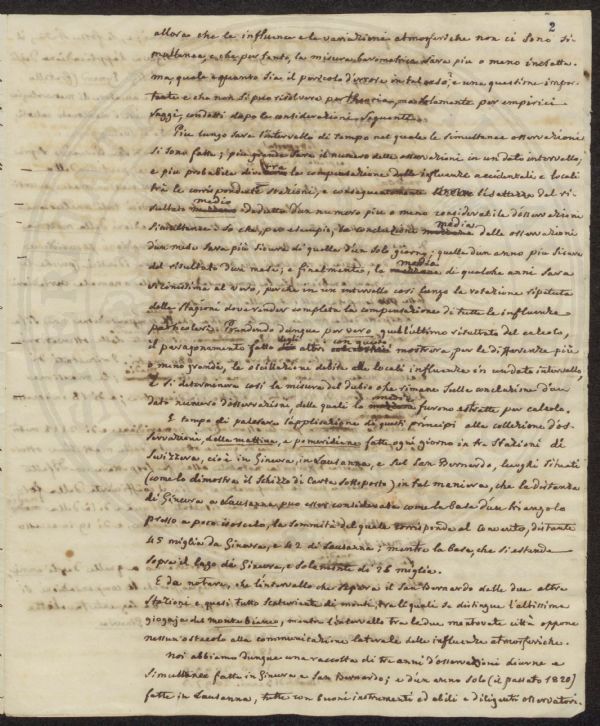 2
allora che le influenze e le variazioni atmosferiche non ci sono si-
multanee, e che per tanto, la misura barometrica sara piu o meno inesatta.
ma, quale e quanto sia il pericolo d'errore in tal caso? e una questione impor-
tante e che non si puo risolvere per theoria, ma solamente per emperici
saggi, condotti dopo le considerazioni seguenti.
Piu lungo sara l'intervallo di tempo nel quale le simultanee osservazioni
si sono fatte; piu grande sara il numero delle osservazioni in un dato intervallo;
e piu probabile la compensazione delle influenze accidentali e locali
tra le corrispondenti stazioni, e consequentemente l'esattezza del ri-
sultato medio dedotto d'un numero piu o meno considerabile d'osservazioni
simultanee: so che, per esempio, la conclusione media delle osservazioni
d'un mese sara piu sicura di quella d'un solo giorno; quella d'un anno piu sicura
del risultato d'un mese; e finalmente, la media di qualche anni sara
vicinissima al vero, perche in un intervallo cosi lungo la rotazione ripetuta
delle stagioni dove render completa la compensazione di tutte le influenze
particolari. Prendendo dunque per vero, quell'ultimo risultato del calcolo,
il paragonamento fatto degli altri con questo mostrera, per le differenze piu
o meno grande, le oscillazione debite alle locali influenze in un dato intervallo,
e si determinera cosi la misura del dubio che rimane sulle conclusione d'un
dato numero d'osservazioni, delle quali le medie furono estratte per calcolo.
E tempo di passare l'applicazione di questi principi alla collezione d'os-
servazione, della mattina, e pomeridiane fatte ogni giorno in tre stazioni di
Svizzera, cioè in Ginevra, in Lausanna, e sul San Bernardo, luoghi situati
(come lo dimostra il schizzo di carta sottoposto) in tal maniera, che la distanza
di Ginevra a Lausanna puo esser considerata come la base d'un triangolo
presso a poco isoscelo, la sommità del quale corrisponde al Convento, distante
45 miglia da Ginevra, e 42 di Lausanna; mentre la base, che si estende
sopra il lago di Ginevra, e solamente di 26 miglia.
E da notare, che l'intervallo che separa il San Bernardo delle due altre
stazioni e quasi tutto scaturiente di monti, tra li quali se distingue l'altissima
giogaja del montebianco, mentre l'intervallo tra le due mentovate città oppone
nessun ostacolo alla communicazione laterale delle influenze atmosferiche.
Noi abbiamo dunque una raccolta di tre anni d'osservazioni diurne e
simultanee fatte in Ginevra e San Bernardo; e d'un anno solo (il passato 1820)
fatte in Lausanna, tutte con buoni instrumenti ed abili e diligenti osservatori.